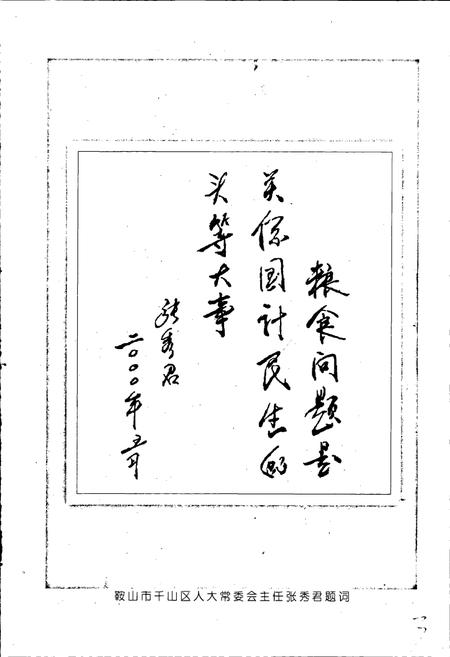 粮食问题是
关系国计民生的
头等大事
张秀君
二〇〇〇年五月
鞍山市千山区人大常委会主任张秀君题词